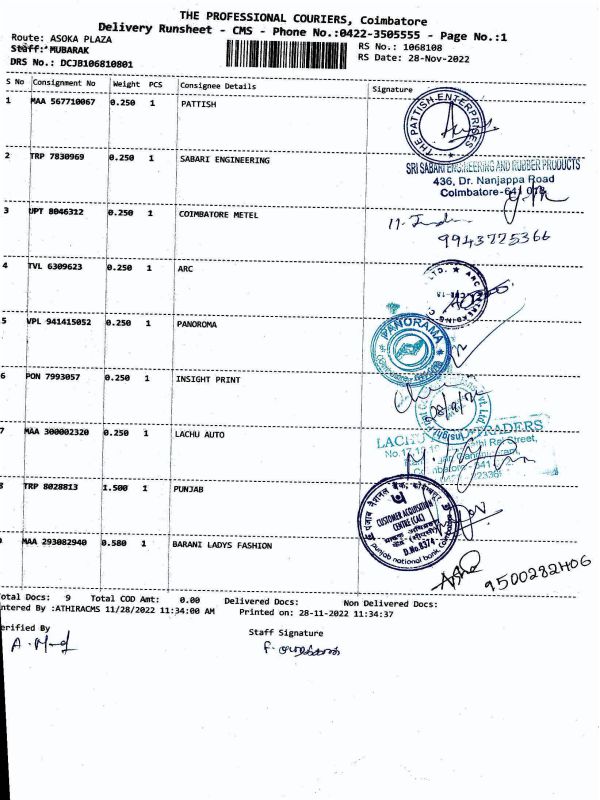 THE PROFESSIONAL COURIERS, Coimbatore
Delivery Runsheet - CMS - Phone No.:0422-3505555 - Page No.:1
Route: ASOKA PLAZA
Staff: MUBARAK
DRS No.: DCJB106810801
RS No.: 1068108
RS Date: 28-Nov-2022
S No Consignment No Weight PCS Consignee Details Signature
1 MAA 567710067 0.250 1 PATTISH
THE PATTISH ENTERPRISES
2 TRP 7830969 0.250 1 SABARI ENGINEERING
SRI SABARI ENGINEERING AND RUBBER PRODUCTS
436, Dr. Nanjappa Road
Coimbatore-641 018
3 UPT 8046312 0.250 1 COIMBATORE METEL
9943725366
4 TVL 6309623 0.250 1 ARC
5 VPL 941415052 0.250 1 PANOROMA
PANORAMA
6 PON 7993057 0.250 1 INSIGHT PRINT
7 MAA 300002320 0.250 1 LACHU AUTO
LACHU TRADERS
Street,
8 TRP 8028813 1.500 1 PUNJAB
CUSTOMER ACQUISITION
CENTRE (CAC)
D.No.8374
punjab national bank, Coimbatore
9 MAA 293082940 0.580 1 BARANI LADYS FASHION
9500282406
otal Docs: 9 Total COD Amt: 0.00 Delivered Docs: Non Delivered Docs:
ntered By :ATHIRACMS 11/28/2022 11:34:00 AM Printed on: 28-11-2022 11:34:37
erified By
Staff Signature